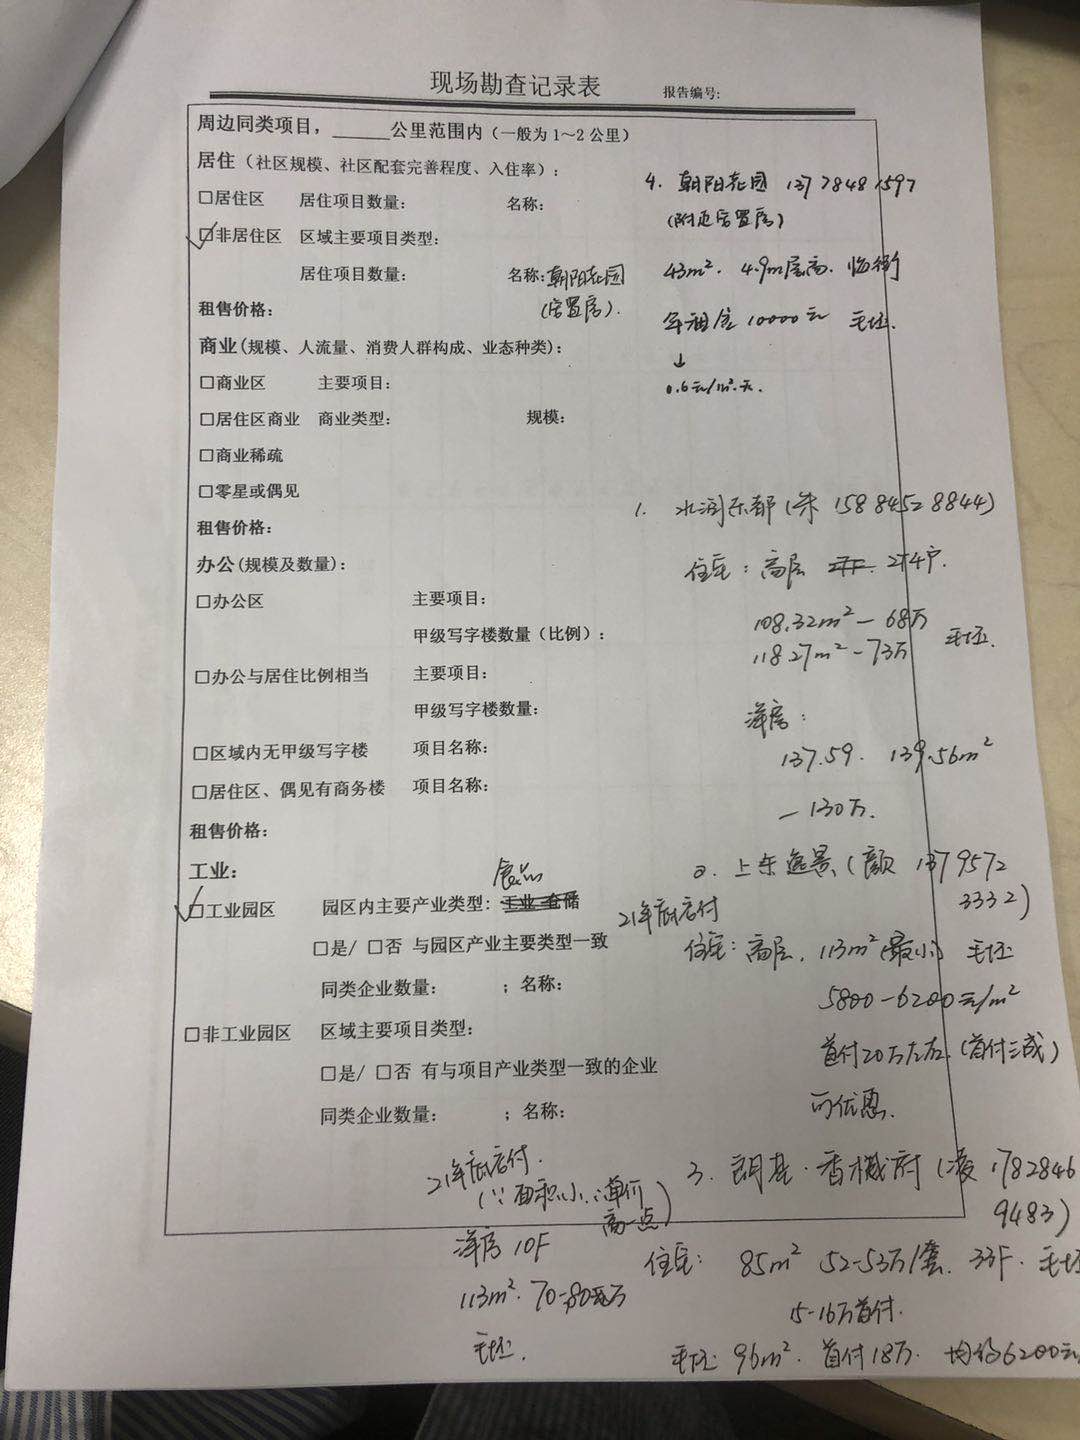 现场勘查记录表 报告编号:
周边同类项目，______公里范围内（一般为1～2公里）
居住（社区规模、社区配套完善程度、入住率）:
□居住区 居住项目数量: 名称:
✓□非居住区 区域主要项目类型:
居住项目数量: 名称: 朝阳花园
(安置房).
租售价格:
商业(规模、人流量、消费人群构成、业态种类):
□商业区 主要项目:
□居住区商业 商业类型: 规模:
□商业稀疏
□零星或偶见
租售价格:
办公(规模及数量):
□办公区 主要项目:
甲级写字楼数量（比例）:
□办公与居住比例相当 主要项目:
甲级写字楼数量:
□区域内无甲级写字楼 项目名称:
□居住区、偶见有商务楼 项目名称:
租售价格:
工业:
食品
✓□工业园区 园区内主要产业类型: 工业 仓储
□是/ □否 与园区产业主要类型一致
同类企业数量: ；名称:
□非工业园区 区域主要项目类型:
□是/ □否 有与项目产业类型一致的企业
同类企业数量: ；名称:
4. 朝阳花园 13778481597
(附近安置房)
43m². 4.9m层高. 临街
年租金10000元 毛坯.
↓
0.6元/m².天.
1. 水润东都(朱 15884528844)
住宅: 高层 2T4户.
108.32m² — 68万
118.27m² — 73万 毛坯.
洋房:
137.59. 139.56m²
— 130万.
2. 上东逸景(颜 1379572
3332)
21年底交付
住宅: 高层, 113m²(最小) 毛坯
5800-6200元/m²
首付20万左右.(首付三成)
可优惠.
3. 朗基·香樾府(凌 1782846
9483)
住宅: 85m² 52-53万/套. 33F. 毛坯
15-16万首付.
毛坯 96m². 首付18万. 均价6200元/
21年底交付.
(∵面积小∴单价
高一点)
洋房 10F
113m². 70-80万
毛坯.